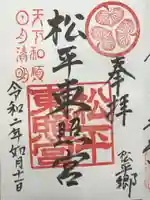 奉拝
松平東照宮
松平
東照宮
天下和順
日月清明
令和二年如月十一日
松平郷